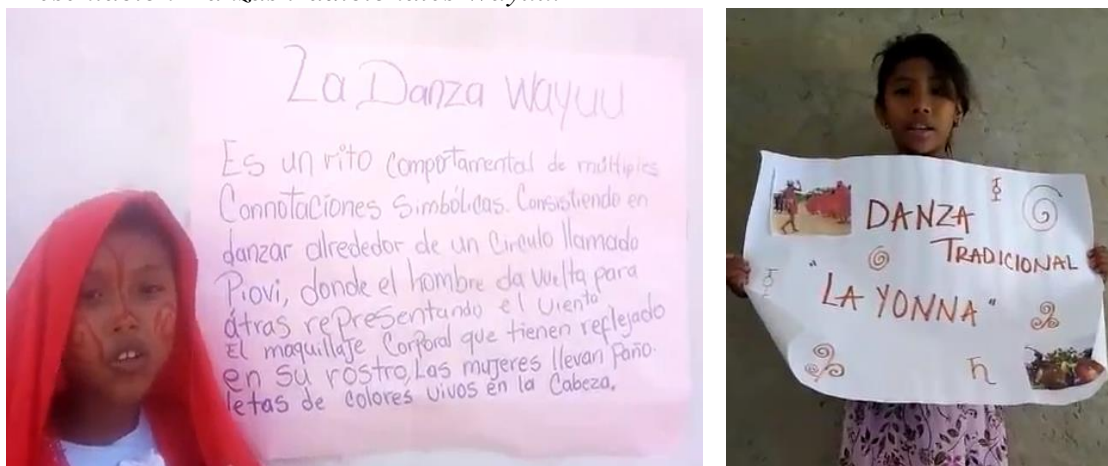 La Danza Wayuu
Es un rito comportamental de múltiples
Connotaciones Simbólicas. Consistiendo en
danzar alrededor de un Circulo llamado
Piovi, donde el hombre da vuelta para
átras representando el viento
El maquillaje Corporal que tienen reflejado
en su rostro, Las mujeres llevan Paño-
letas de colores vivos en la Cabeza.
DANZA
TRADICIONAL
"LA YONNA"